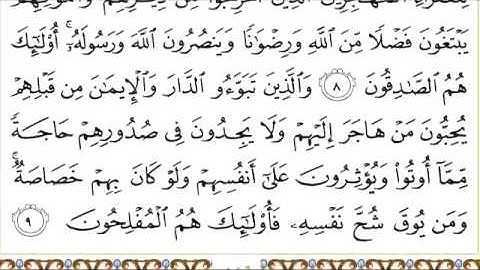 لِلْفُقَرَآءِ ٱلْمُهَٰجِرِينَ ٱلَّذِينَ أُخْرِجُوا۟ مِن دِيَٰرِهِمْ وَأَمْوَٰلِهِمْ
يَبْتَغُونَ فَضْلًا مِّنَ ٱللَّهِ وَرِضْوَٰنًا وَيَنصُرُونَ ٱللَّهَ وَرَسُولَهُۥٓ ۚ أُو۟لَٰٓئِكَ
هُمُ ٱلصَّٰدِقُونَ ٨ وَٱلَّذِينَ تَبَوَّءُو ٱلدَّارَ وَٱلْإِيمَٰنَ مِن قَبْلِهِمْ
يُحِبُّونَ مَنْ هَاجَرَ إِلَيْهِمْ وَلَا يَجِدُونَ فِى صُدُورِهِمْ حَاجَةً
مِّمَّآ أُوتُوا۟ وَيُؤْثِرُونَ عَلَىٰٓ أَنفُسِهِمْ وَلَوْ كَانَ بِهِمْ خَصَاصَةٌ ۚ
وَمَن يُوقَ شُحَّ نَفْسِهِۦ فَأُو۟لَٰٓئِكَ هُمُ ٱلْمُفْلِحُونَ ٩